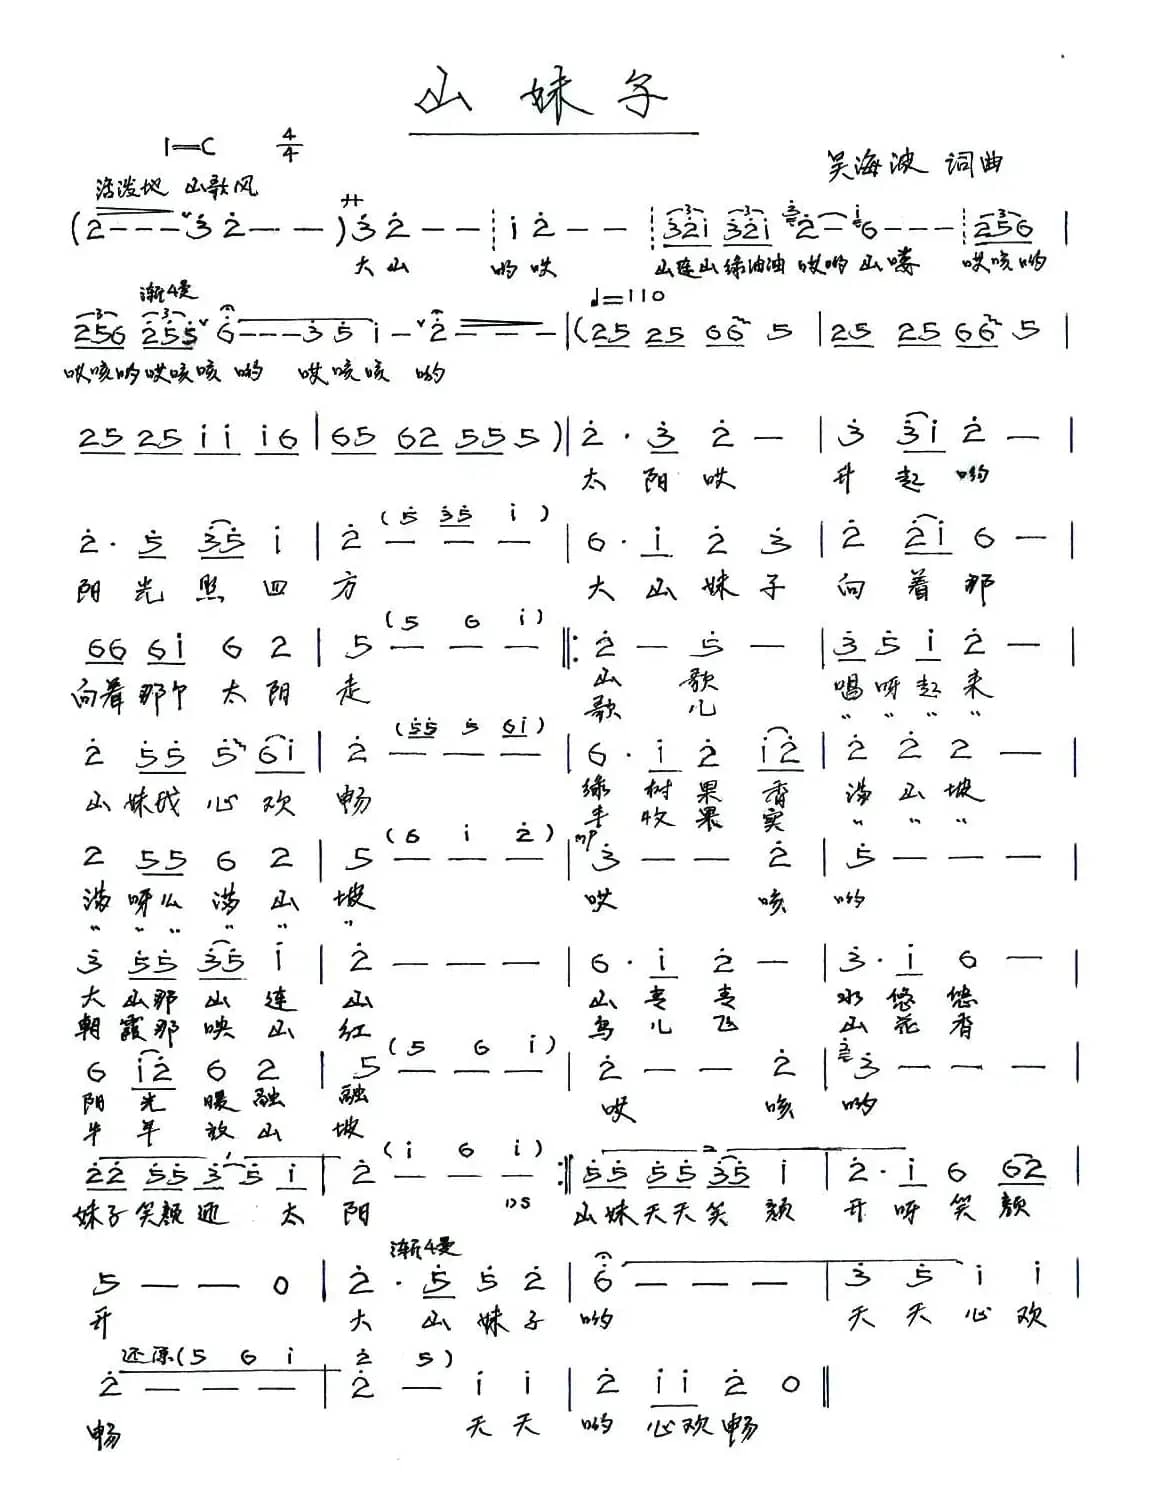 山妹子
1=C 4/4
吴海波 词曲
活泼地 山歌风
サ
(2̇---ᵛ3̇ 2̇--) 3̇ 2̇-- ┊ i 2̇-- ┊ 3̇2̇i 3̇2̇i 2̇-6--- ┊ 256 |
大山 哟哎 山连山绿油油 哎哟山喽 哎咳哟
渐慢 ♩=110
256 2̇5̇5̇ᵛ 6̇---3̇ 5̇ i-ᵛ2̇--- |(25 25 66 5 | 25 25 66 5 |
哎咳哟哎咳咳哟 哎咳咳 哟
25 25 i i i6 | 65 62 55 5 )| 2̇· 3̇ 2̇ — | 3̇ 3̇i 2̇ — |
太阳哎 升起哟
(5̇ 3̇5̇ i)
2̇· 5̇ 3̇5̇ i | 2̇ — — — | 6· i 2̇ 3̇ | 2̇ 2̇i 6 — |
阳光照四方 大山妹子 向着那
(5 6 i)
66 6i 6 2 | 5 — — — ‖: 2̇ — 5̇ — | 3̇ 5̇ i 2̇ — |
向着那个太阳走 山歌 唱呀起来
歌儿 〃〃〃〃
(5̇5̇ 5̇ 6i)
2̇ 5̇5̇ 5̇ 6i | 2̇ — — — | 6· i 2̇ i2̇ | 2̇ 2̇ 2 — |
山妹我心欢畅 绿树果香 满山坡
丰收果实 〃〃〃
(6 i 2̇) mp
2 55 6 2 | 5 — — — | 3̇ — — 2̇ | 5̇ — — — |
满呀么满山坡 哎 咳 哟
〃〃〃〃〃〃
3̇ 5̇5̇ 3̇5̇ i | 2̇ — — — | 6· i 2̇ — | 3̇· i 6 — |
大山那山连山 山青青 水悠悠
朝霞那映山红 鸟儿飞 山花香
(5 6 i)
6 i2̇ 6 2 | 5 — — — | 2̇ — — 2̇ | 3̇ — — — |
阳光暖融融 哎 咳 哟
牛羊放山坡
1 (i 6 i) 2
2̇2̇ 5̇5̇ 3̇ 5̇ i | 2̇ — — — :‖ 5̇5̇ 5̇5̇ 3̇5̇ i | 2̇· i 6 62 |
DS
妹子笑颜迎太阳 山妹天天笑颜 开呀笑颜
渐慢
5 — — 0 | 2̇· 5̇ 5̇ 2̇ | 6̇ — — — | 3̇ 5̇ i i |
开 大山妹子 哟 天天心欢
还原(5 6 i 2̇ 5)
2̇ — — — | 2̇ — i i | 2̇ i i 2̇ 0 ‖
畅 天天 哟 心欢畅